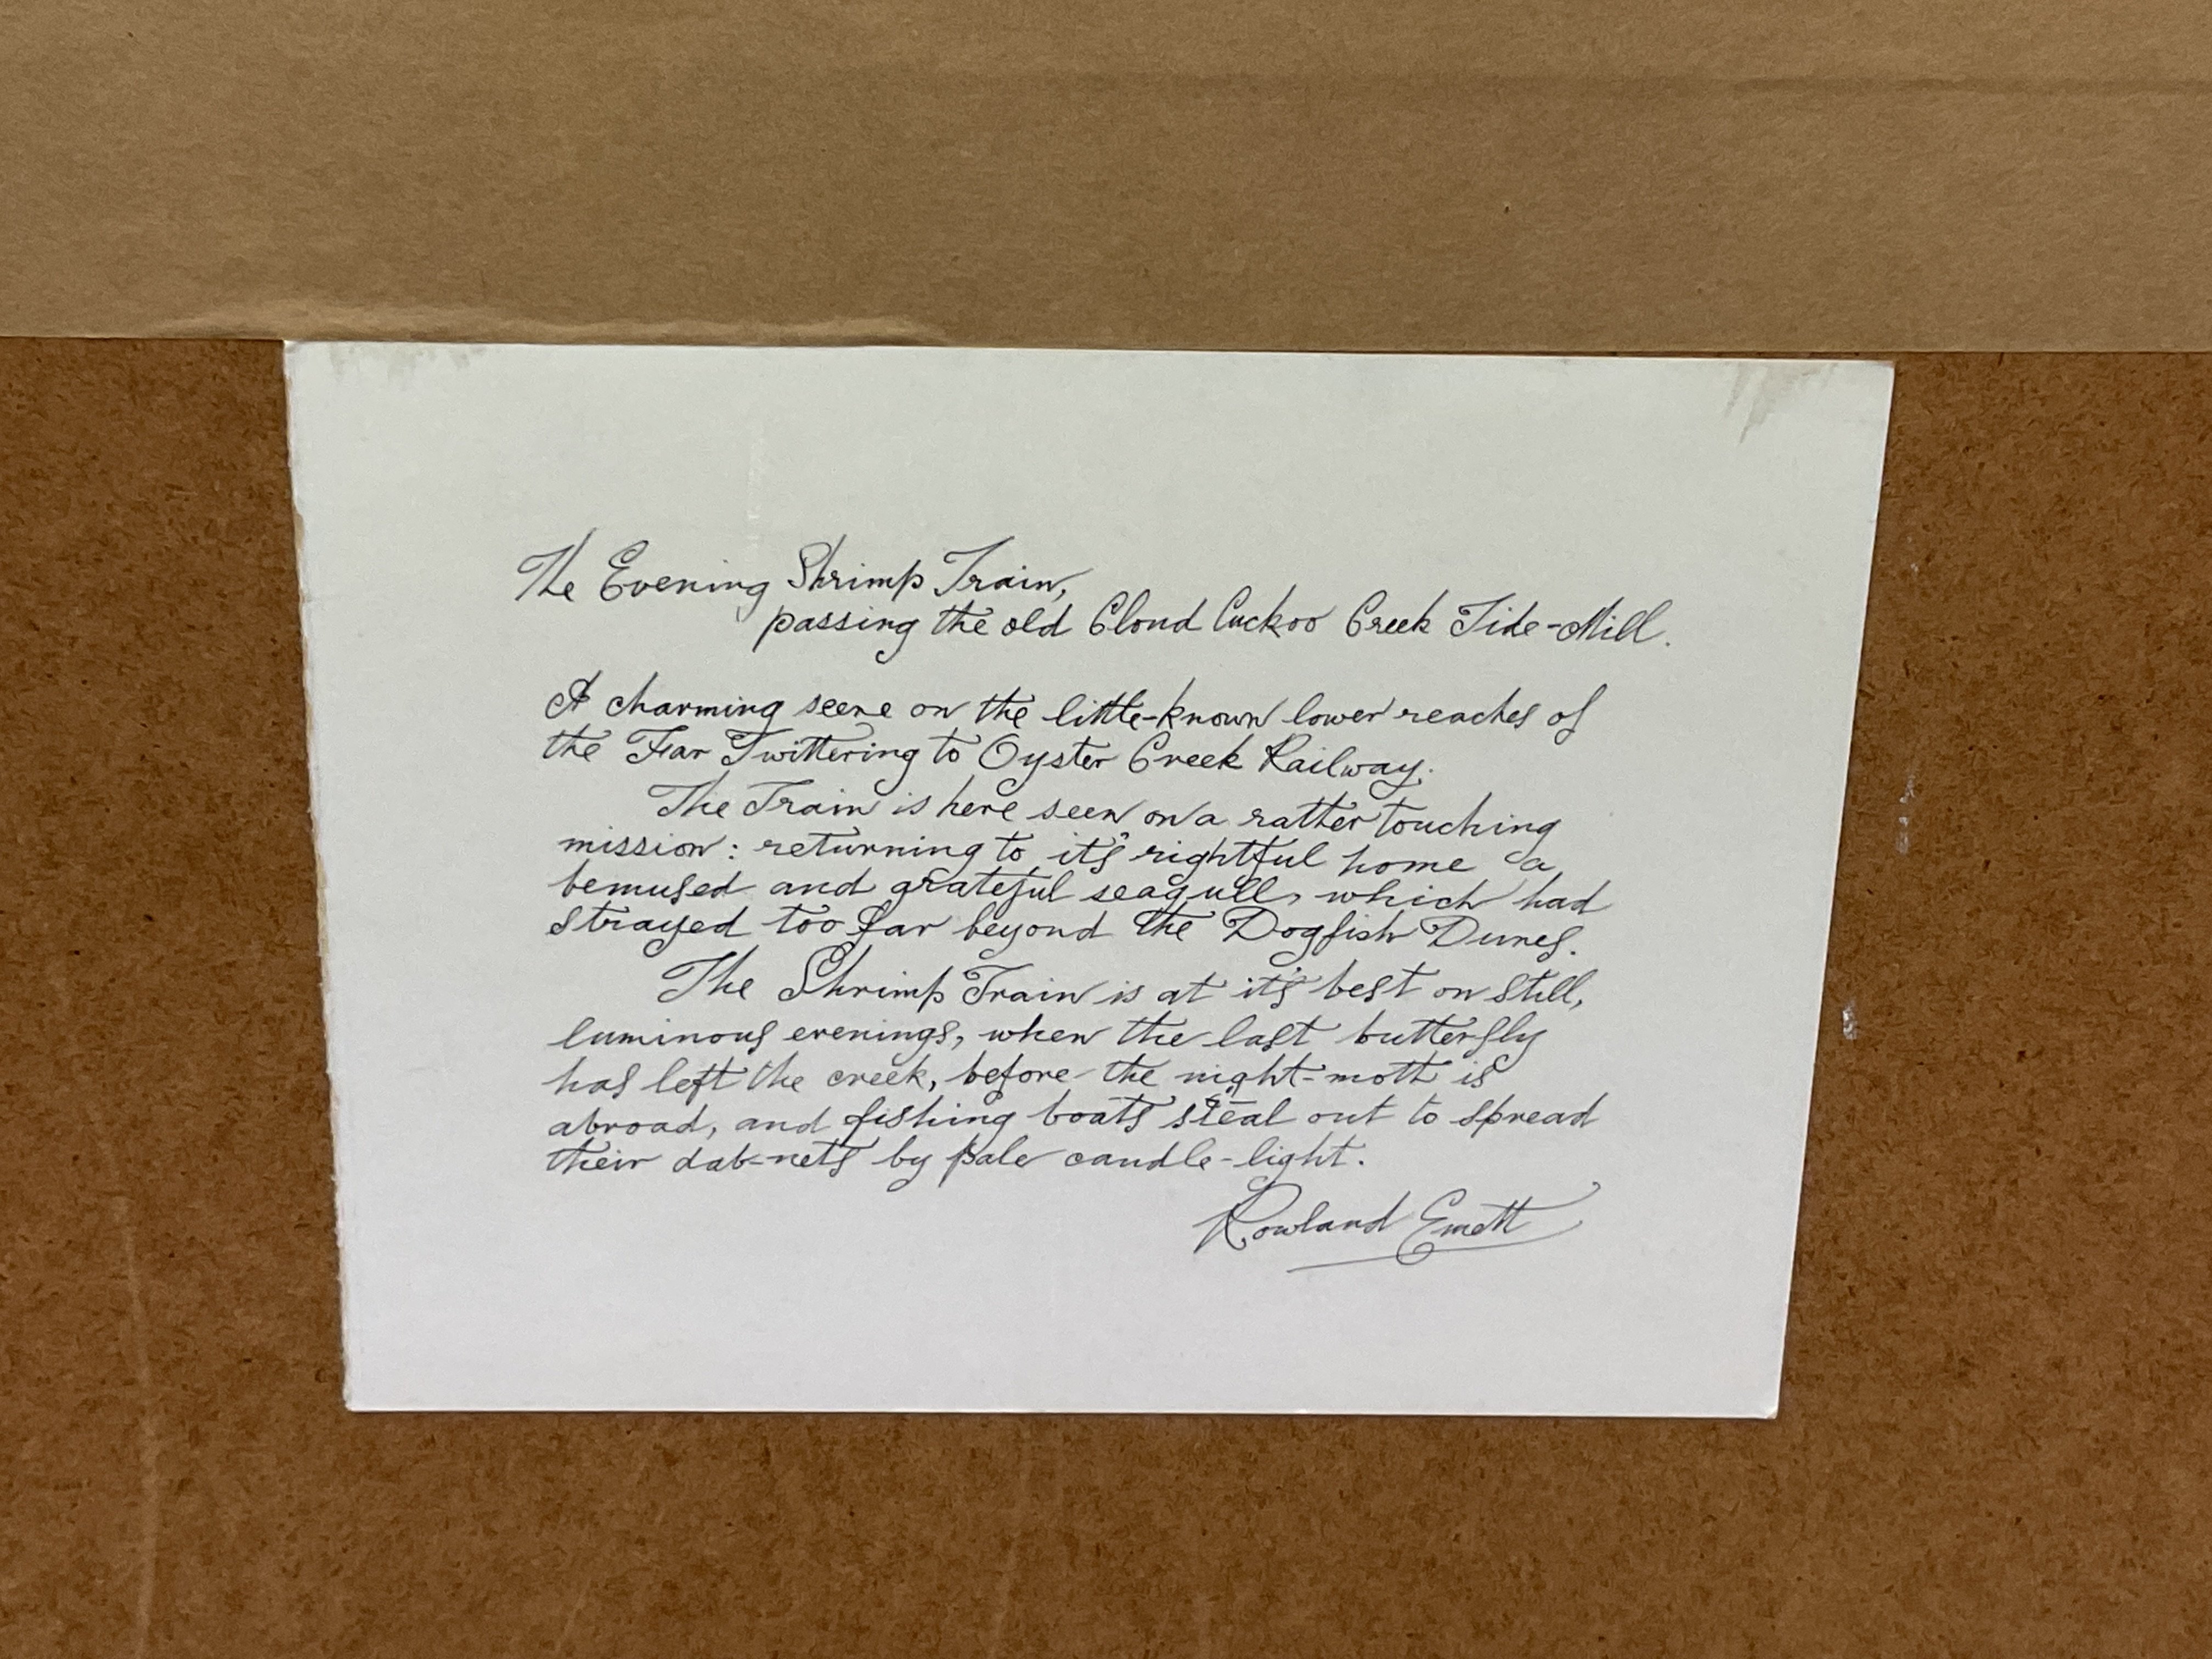 The Evening Shrimp Train,
passing the old Cloud Cuckoo Creek Tide-Mill.
A charming scene on the little-known lower reaches of
the Far Twittering to Oyster Creek Railway.
The Train is here seen on a rather touching
mission: returning to it's rightful home a
bemused and grateful seagull, which had
strayed too far beyond the Dogfish Dunes.
The Shrimp Train is at it's best on still,
luminous evenings, when the last butterfly
has left the creek, before the night-moth is
abroad, and fishing boats steal out to spread
their dab-nets by pale candle-light.
Rowland Emett